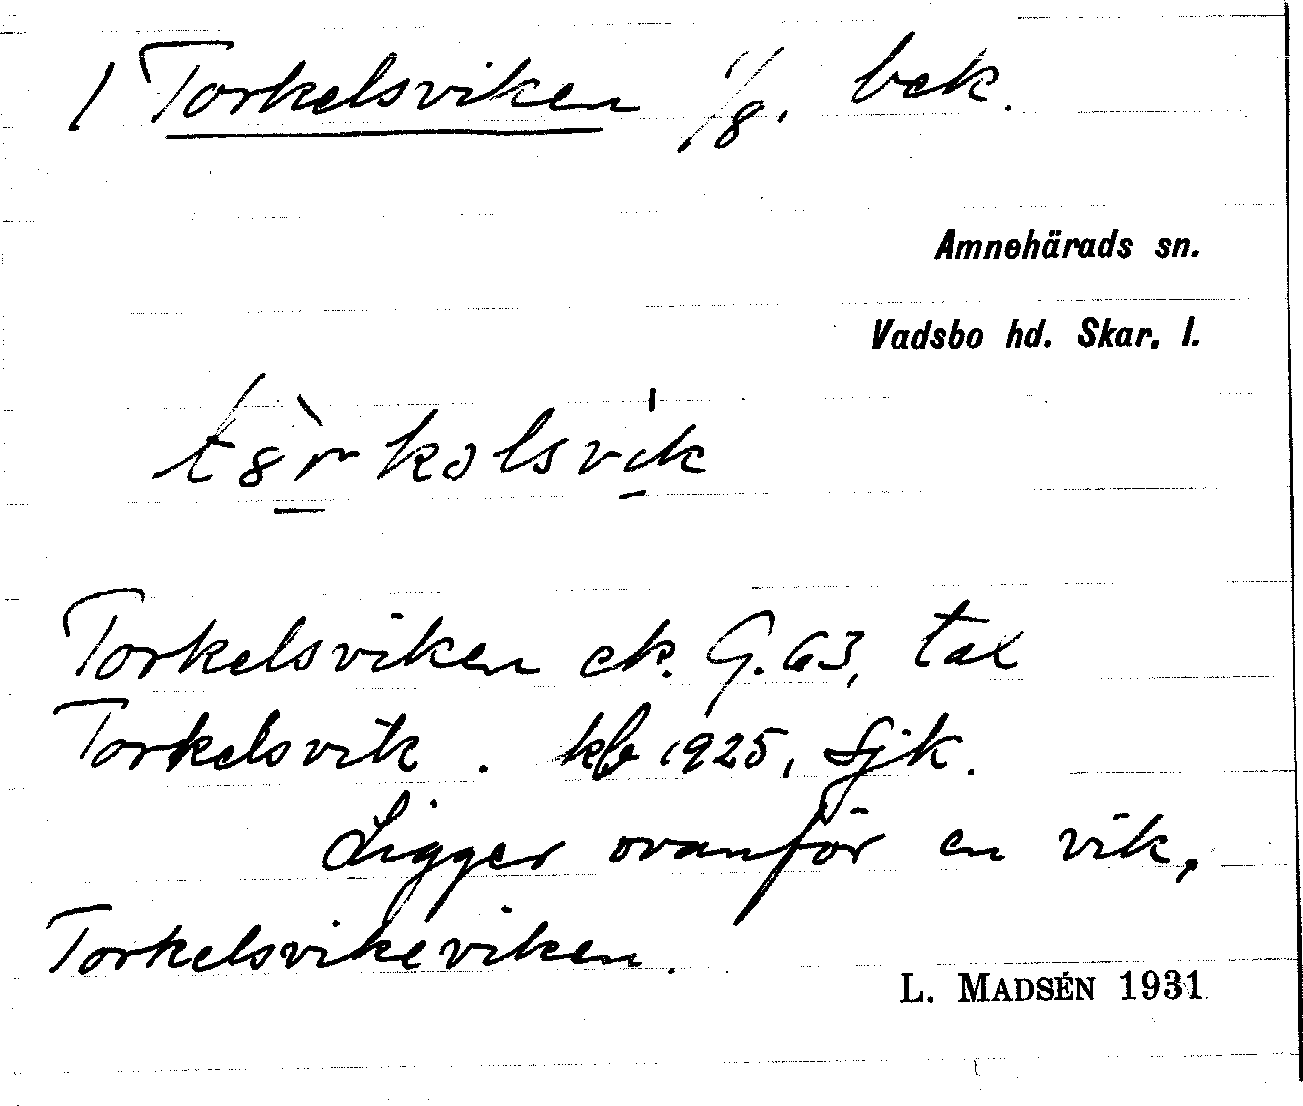 1 Torkelsviken 1/8. bek.
Amnehärads sn.
Vadsbo hd. Skar. l.
Torkelsviken ek. G. 63, tax
Torkelsvik. kb 1925, sjk.
Ligger ovanför en vik,
Torkelsvikeviken.
L. MADSÉN 1931